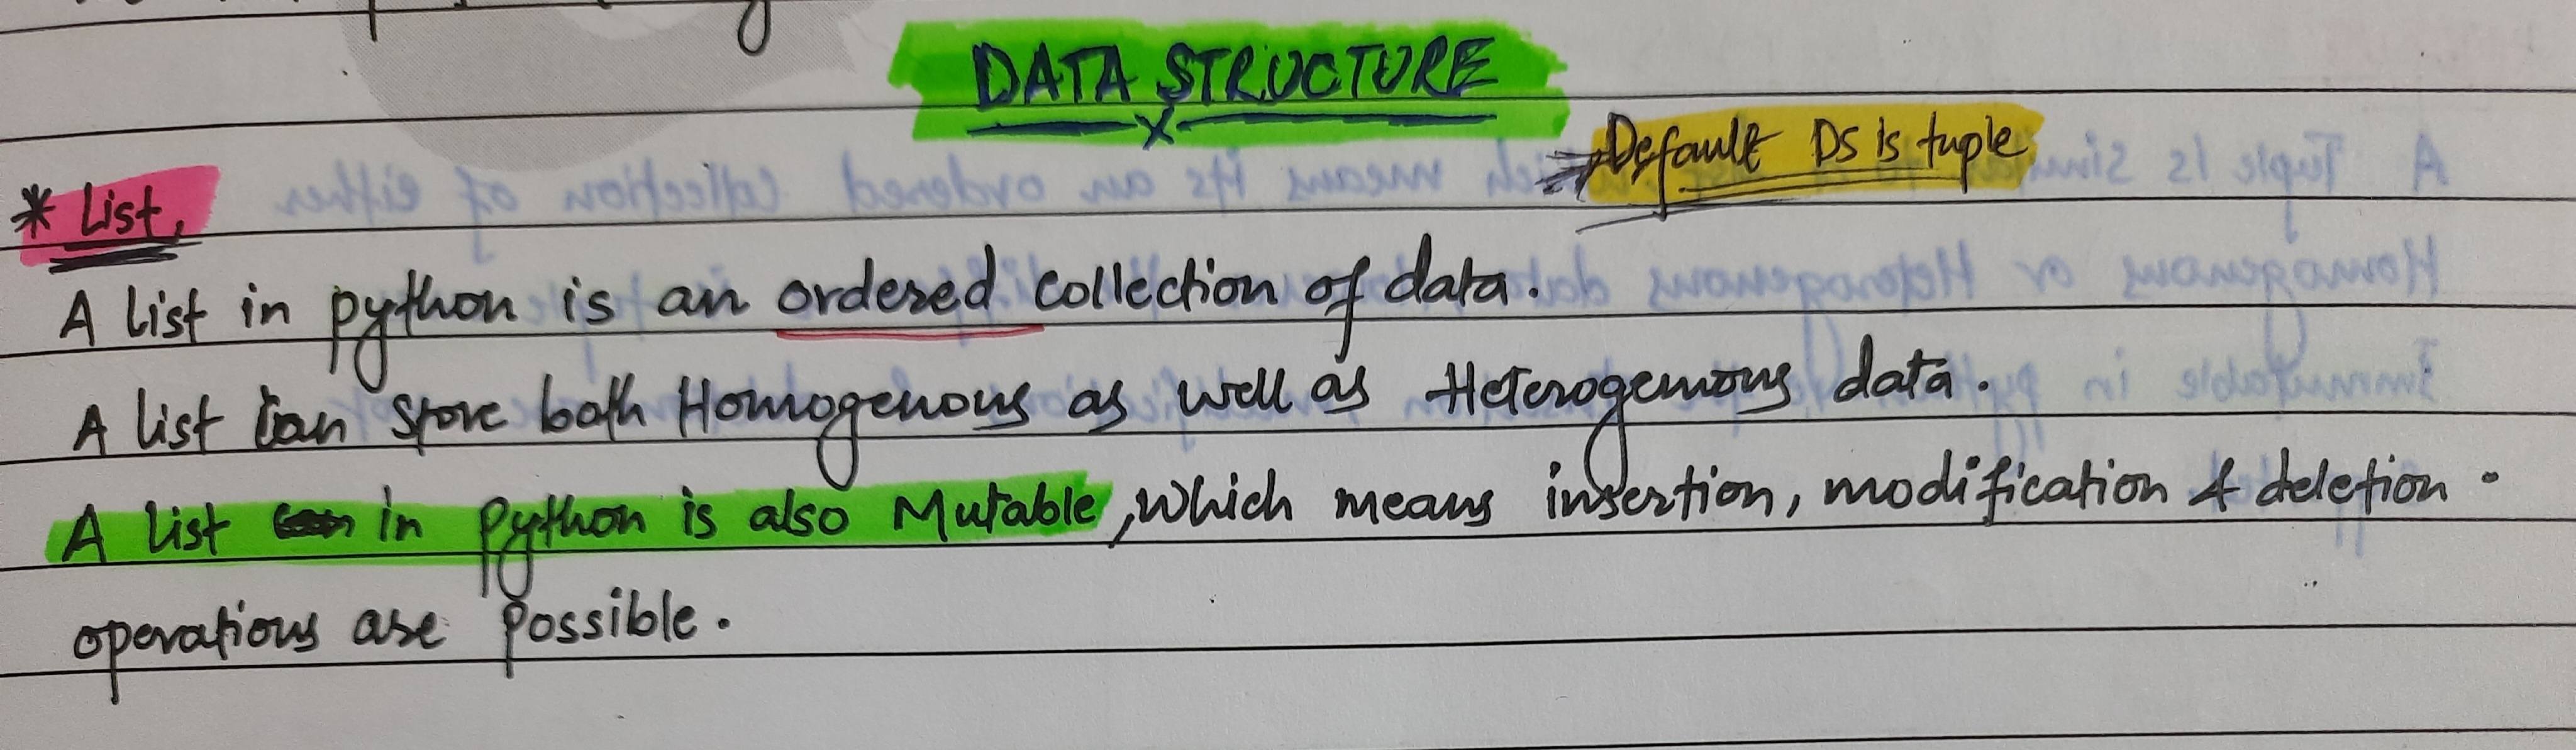 DATA STRUCTURE
Default DS is tuple
* List.
A list in python is an ordered collection of data.
A list can store both Homogenous as well as Heterogenous data.
A list in python is also Mutable, which means insertion, modification & deletion.
operations are possible.